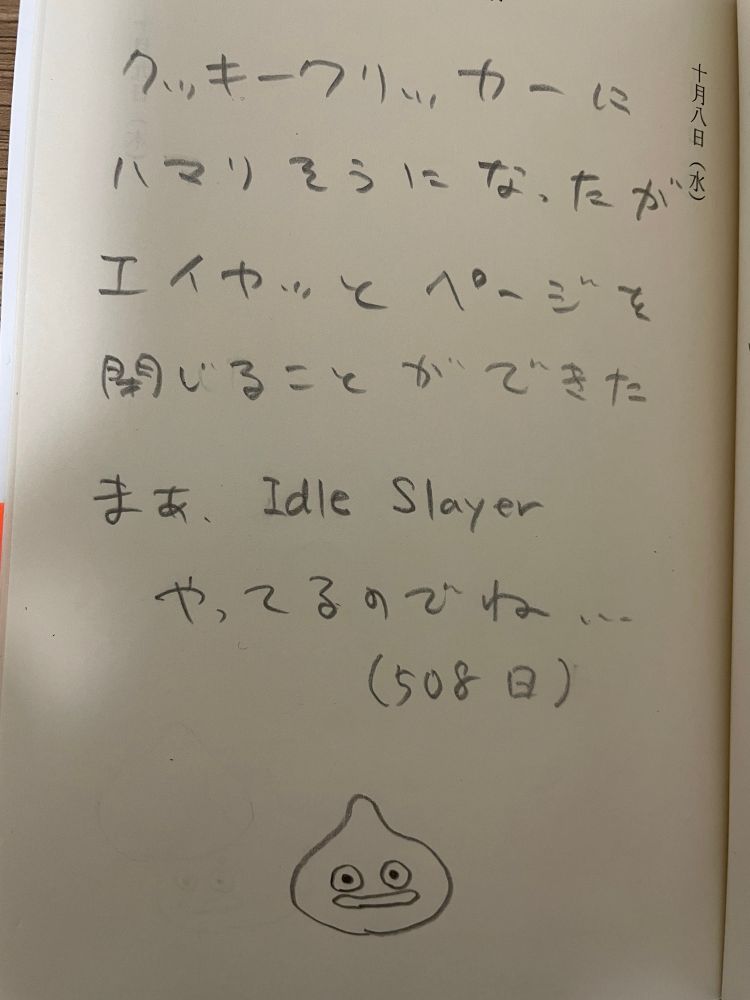 十月八日（水）
クッキークリッカーに
ハマりそうになったが
エイヤッとページを
閉じることができた
まぁ、Idle Slayer
やってるのでね…
(508日)